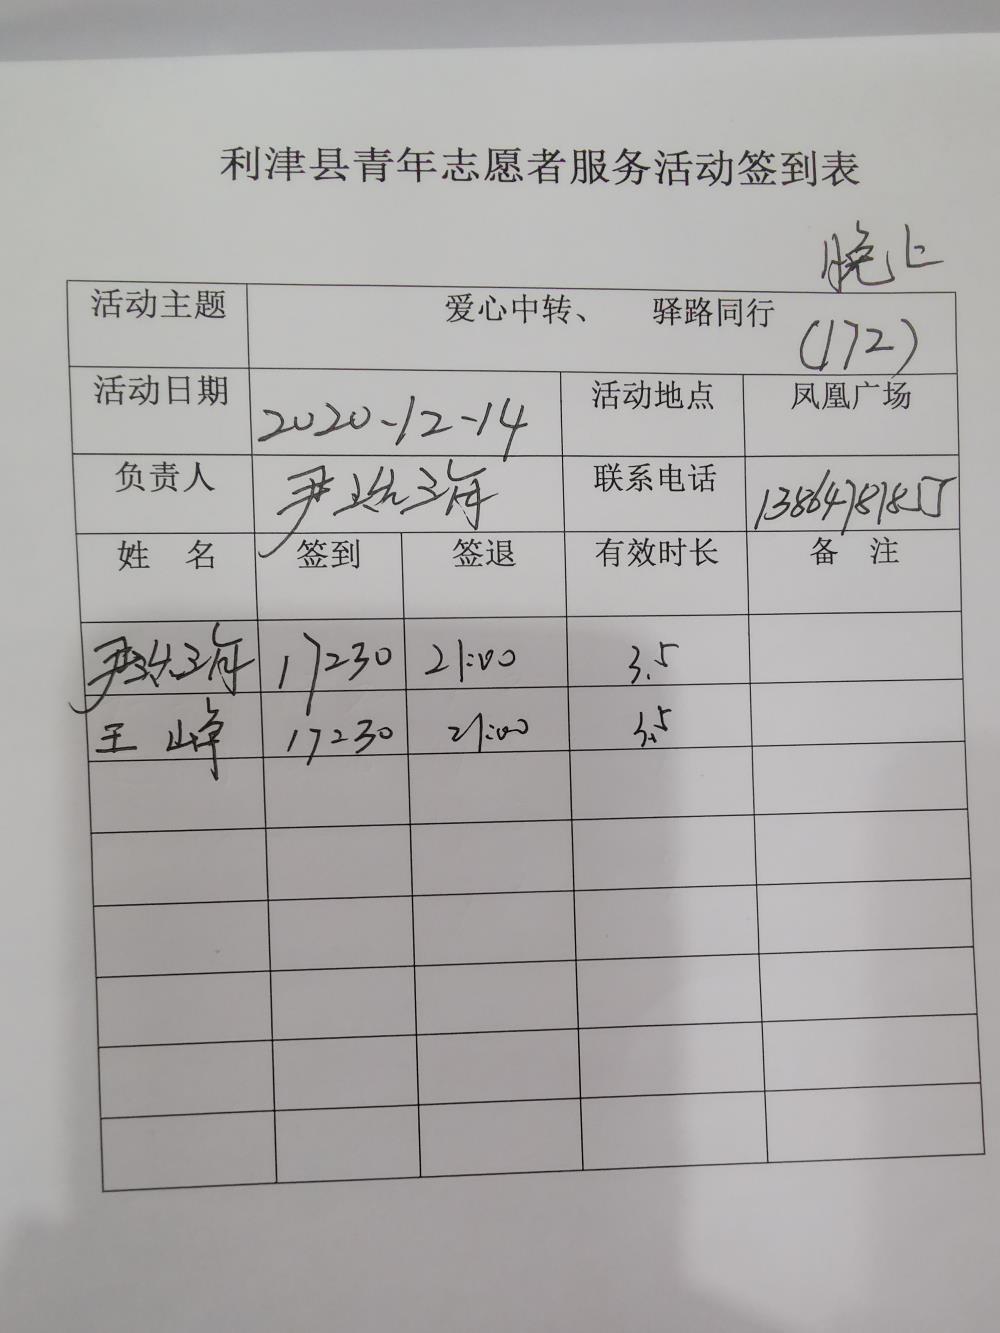 利津县青年志愿者服务活动签到表
晚上
活动主题 爱心中转、 驿路同行 (172)
活动日期 2020-12-14 活动地点 凤凰广场
负责人 尹 联系电话
姓 名 签到 签退 有效时长 备 注
尹 1730 21:00 3.5
王 峰 1730 21:00 3.5